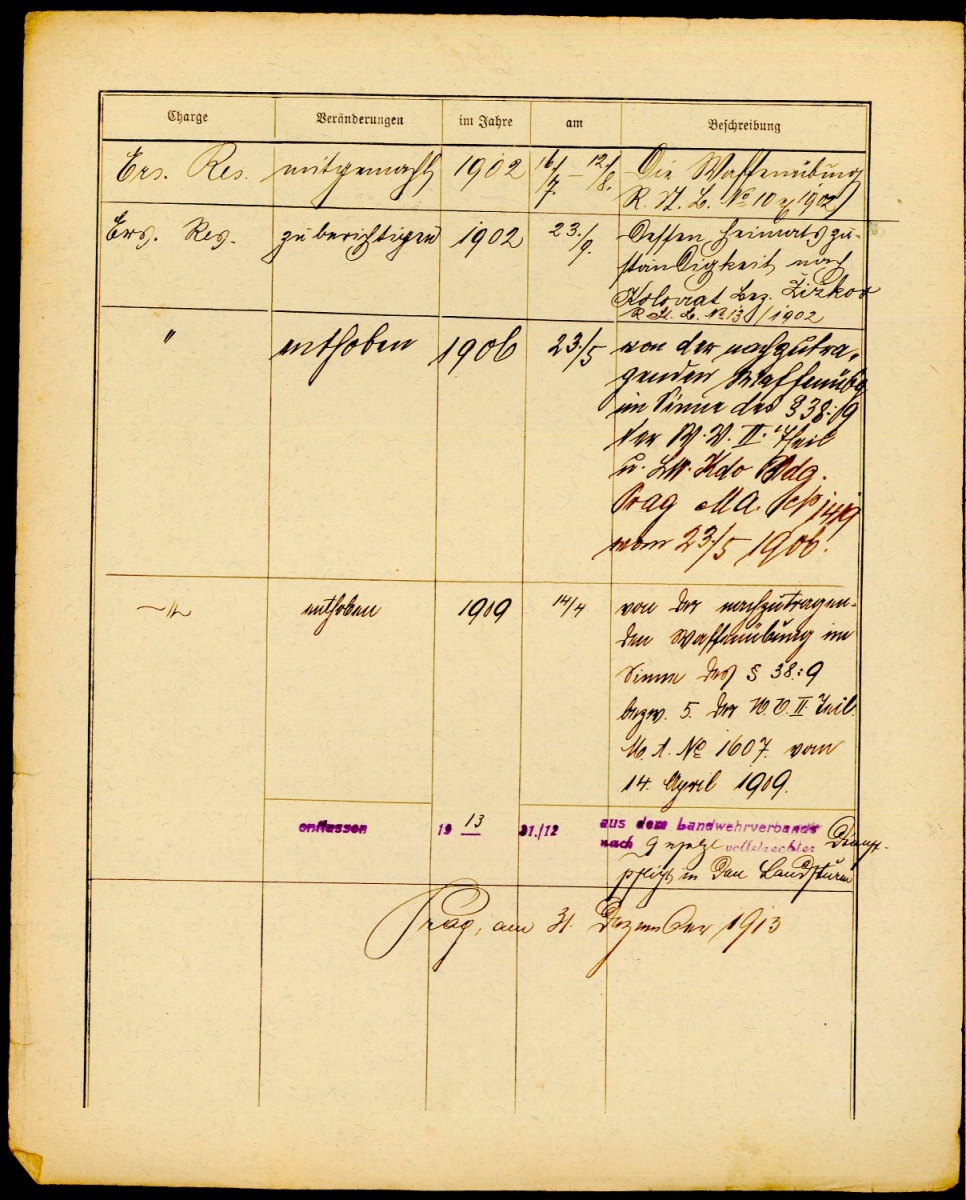 Charge Veränderungen im Jahre am Beschreibung
Ers. Res. mitgemacht 1902 16/7. – 12/8. Die Waffenübung
R. H. L. № 10 1902
Ers. Res. zu berichtigen 1902 23./9. Dessen Heimatszu-
ständigkeit nach
Kolovrat Bez. Žižkov
R. H. L. № 13 /1902
" enthoben 1906 23./5 von der nachzutra-
genden Waffenübg
im Sinne des § 38:9
der W. V. II. Theil
u. Lw. Kdo Bdg.
Prag M.A.
vom 23./5 1906.
-"- enthoben 1909 14/4 von der nachzutragen-
den Waffenübung im
Sinne des § 38:9
bezw. 5. der W. V. II. Teil.
M. A. № 1607. vom
14. April 1909.
entlassen 19 13 31./12 aus dem Landwehrverbande
nach Gesetz vollstreckter Dienst-
pflicht in den Landsturm
Prag, am 31. Dezember 1913